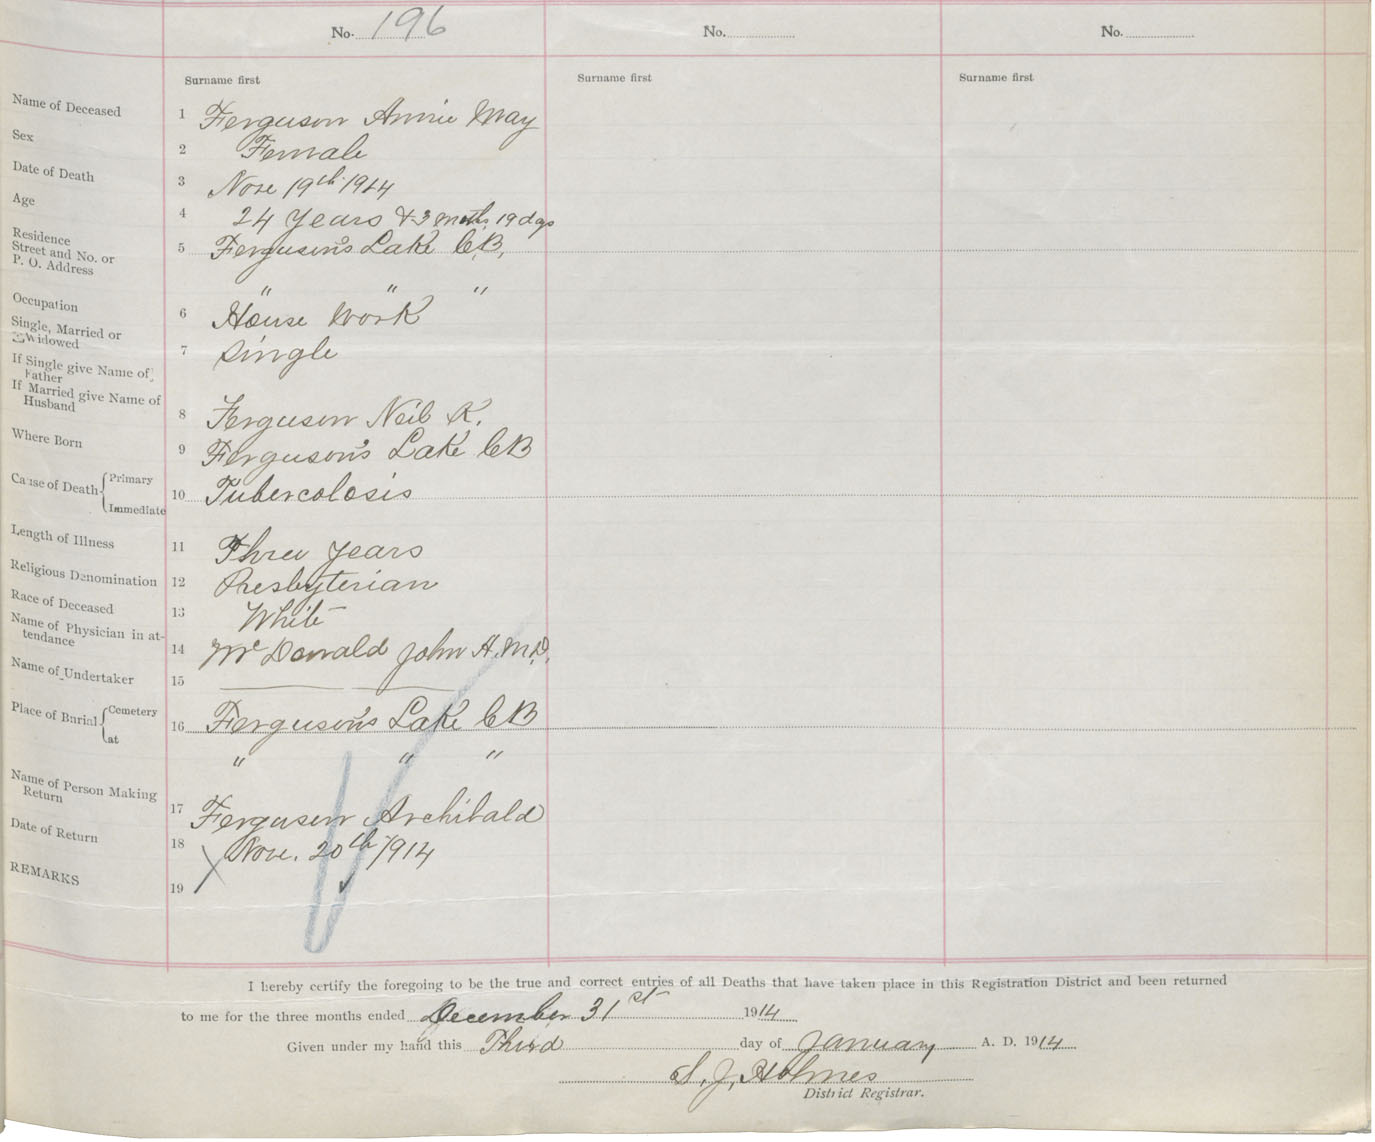 No. 196 No. No.
Surname first Surname first Surname first
Name of Deceased 1 Ferguson Annie May
Sex 2 Female
Date of Death 3 Nove 19th 1914
Age 4 24 years & 3 moths 19 dys
Residence
Street and No. or
P. O. Address 5 Ferguson's Lake C.B.
" " "
Occupation 6 House Work
Single, Married or
Widowed 7 Single
If Single give Name of
Father
If Married give Name of
Husband 8 Ferguson Neil K.
Where Born 9 Ferguson's Lake CB
Cause of Death { Primary
Immediate 10 Tubercolosis
Length of Illness 11 Three years
Religious Denomination 12 Presbyterian
Race of Deceased 13 White
Name of Physician in at-
tendance 14 McDonald John H. M.D.
Name of Undertaker 15
Place of Burial { Cemetery
at 16 Ferguson's Lake CB
" " "
Name of Person Making
Return 17 Ferguson Archibald
Date of Return 18 Nove. 20th 1914
REMARKS 19
I hereby certify the foregoing to be the true and correct entries of all Deaths that have taken place in this Registration District and been returned
to me for the three months ended December 31st 1914
Given under my hand this Third day of January A. D. 1914
S. J. Holmes
District Registrar.